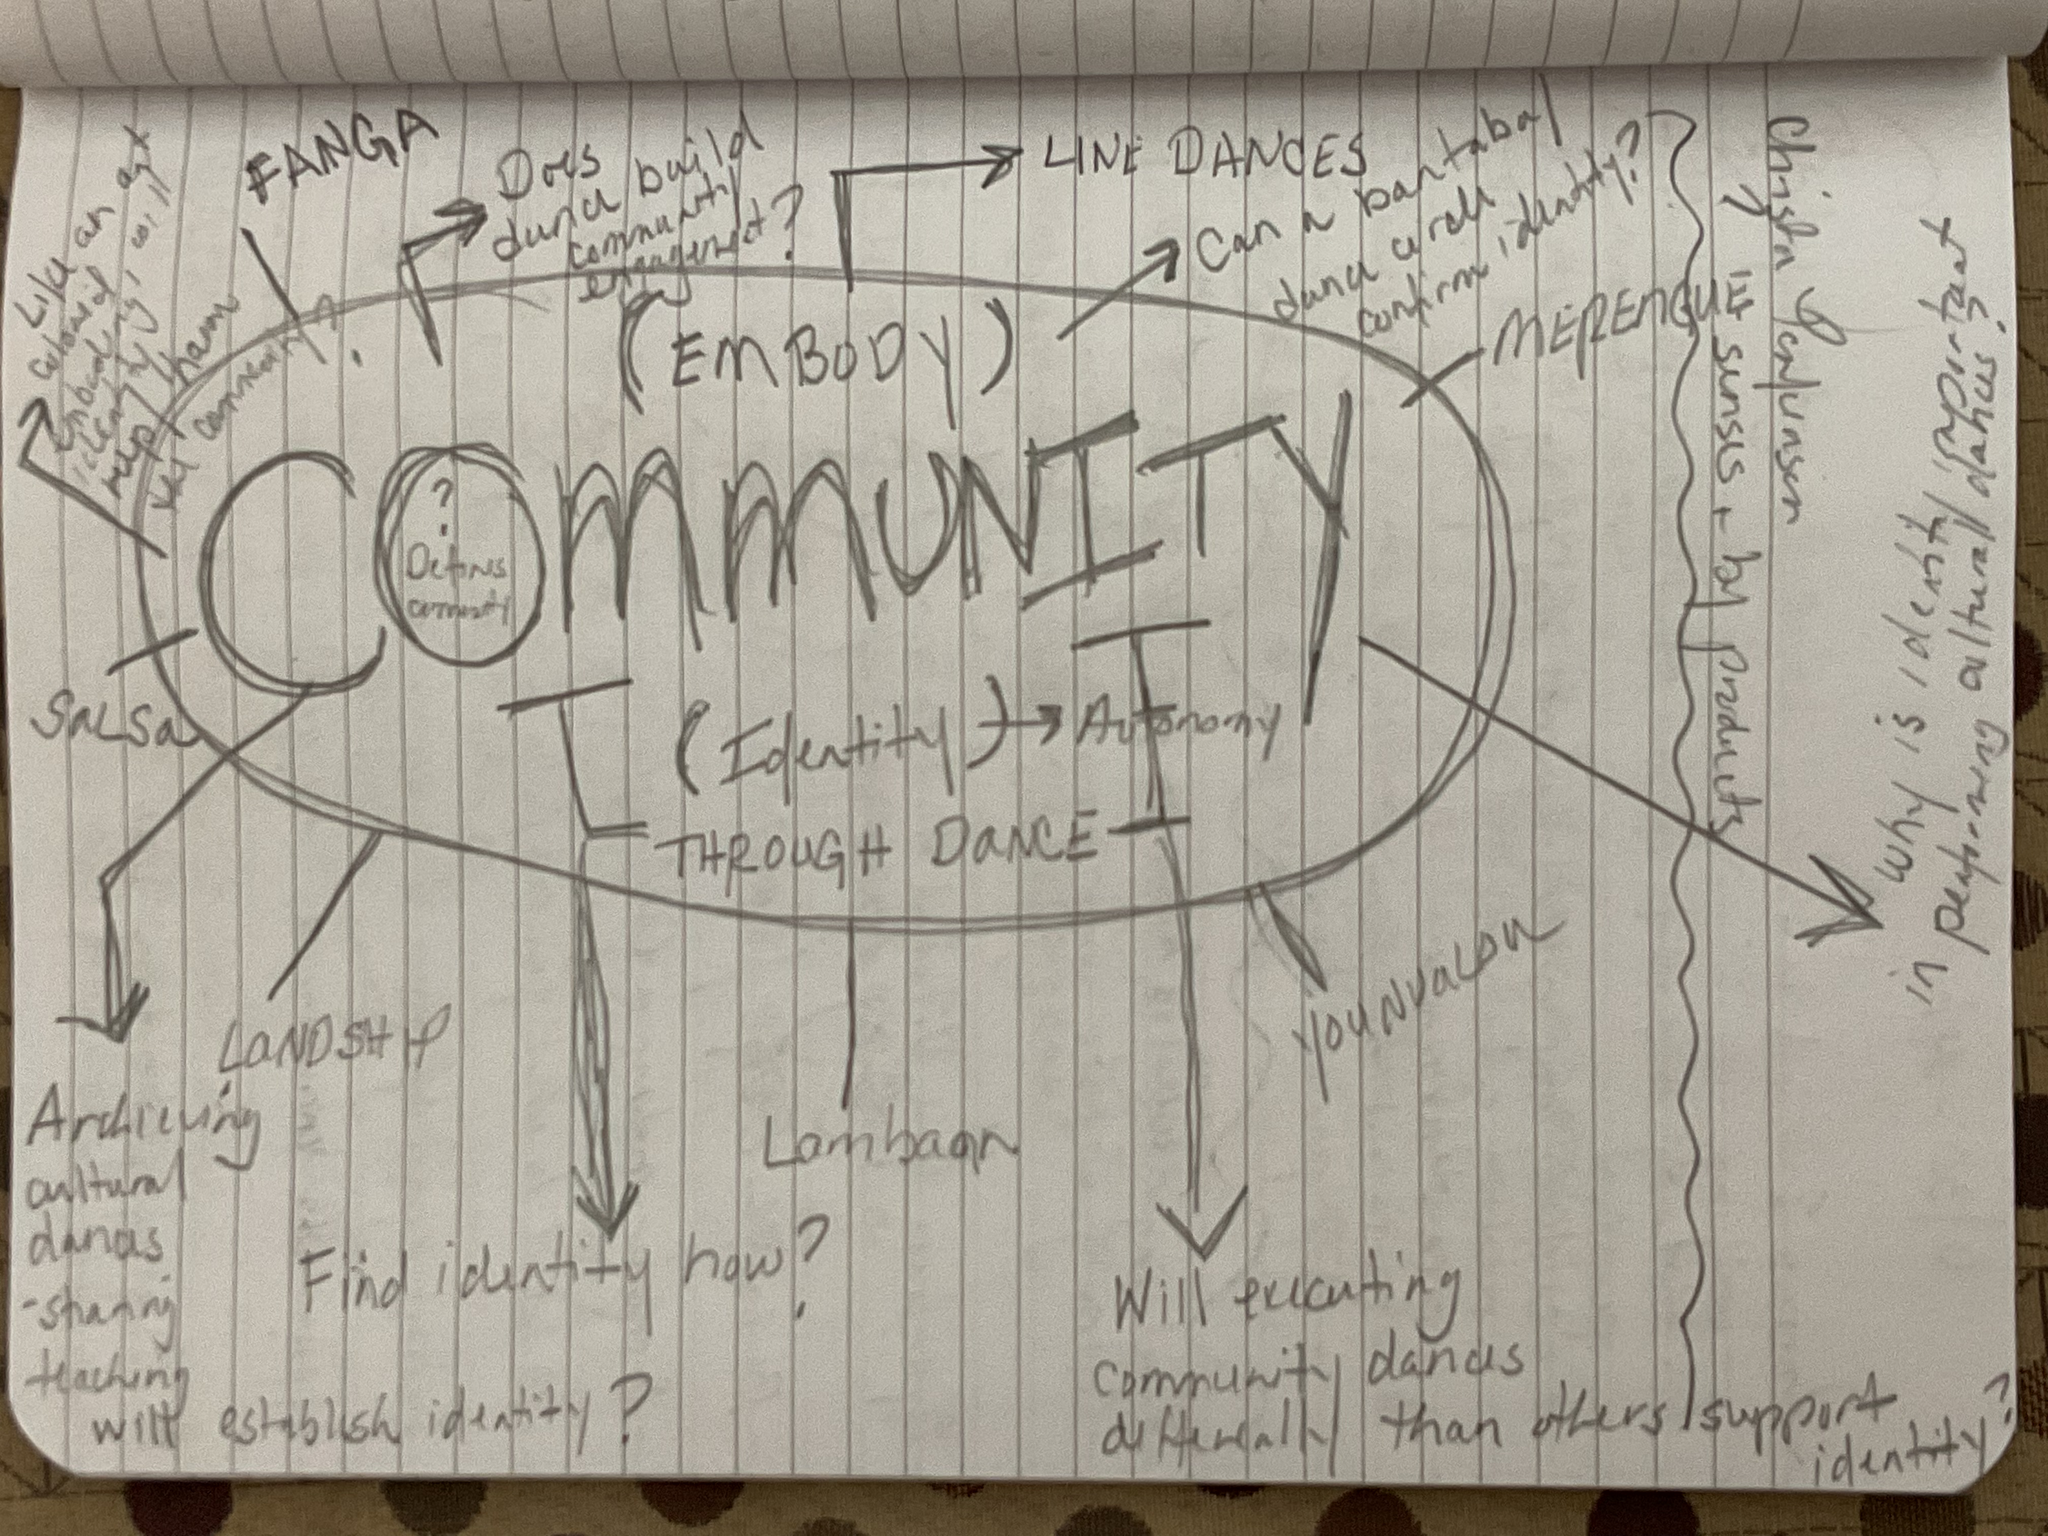 FANGA
Does
dance build
community
engagement?
LINE DANCES
Can a bantabal
dance circle
confirm identity?
MERENGUE
Like an
colonial
embodying
identity, will
help
(EMBODY)
COMMUNITY
?
Defines
community
(Identity) → Autonomy
THROUGH DANCE
SALSA
LANDSHIP
Lambaan
YOUNVALOU
Archieving
cultural
dances
-sharing
teaching
will establish identity?
Find identity how?
Will executing
community dances
differently than others support
identity?
Christa
5 senses + by products
Why is identity important
in performing cultural dances?